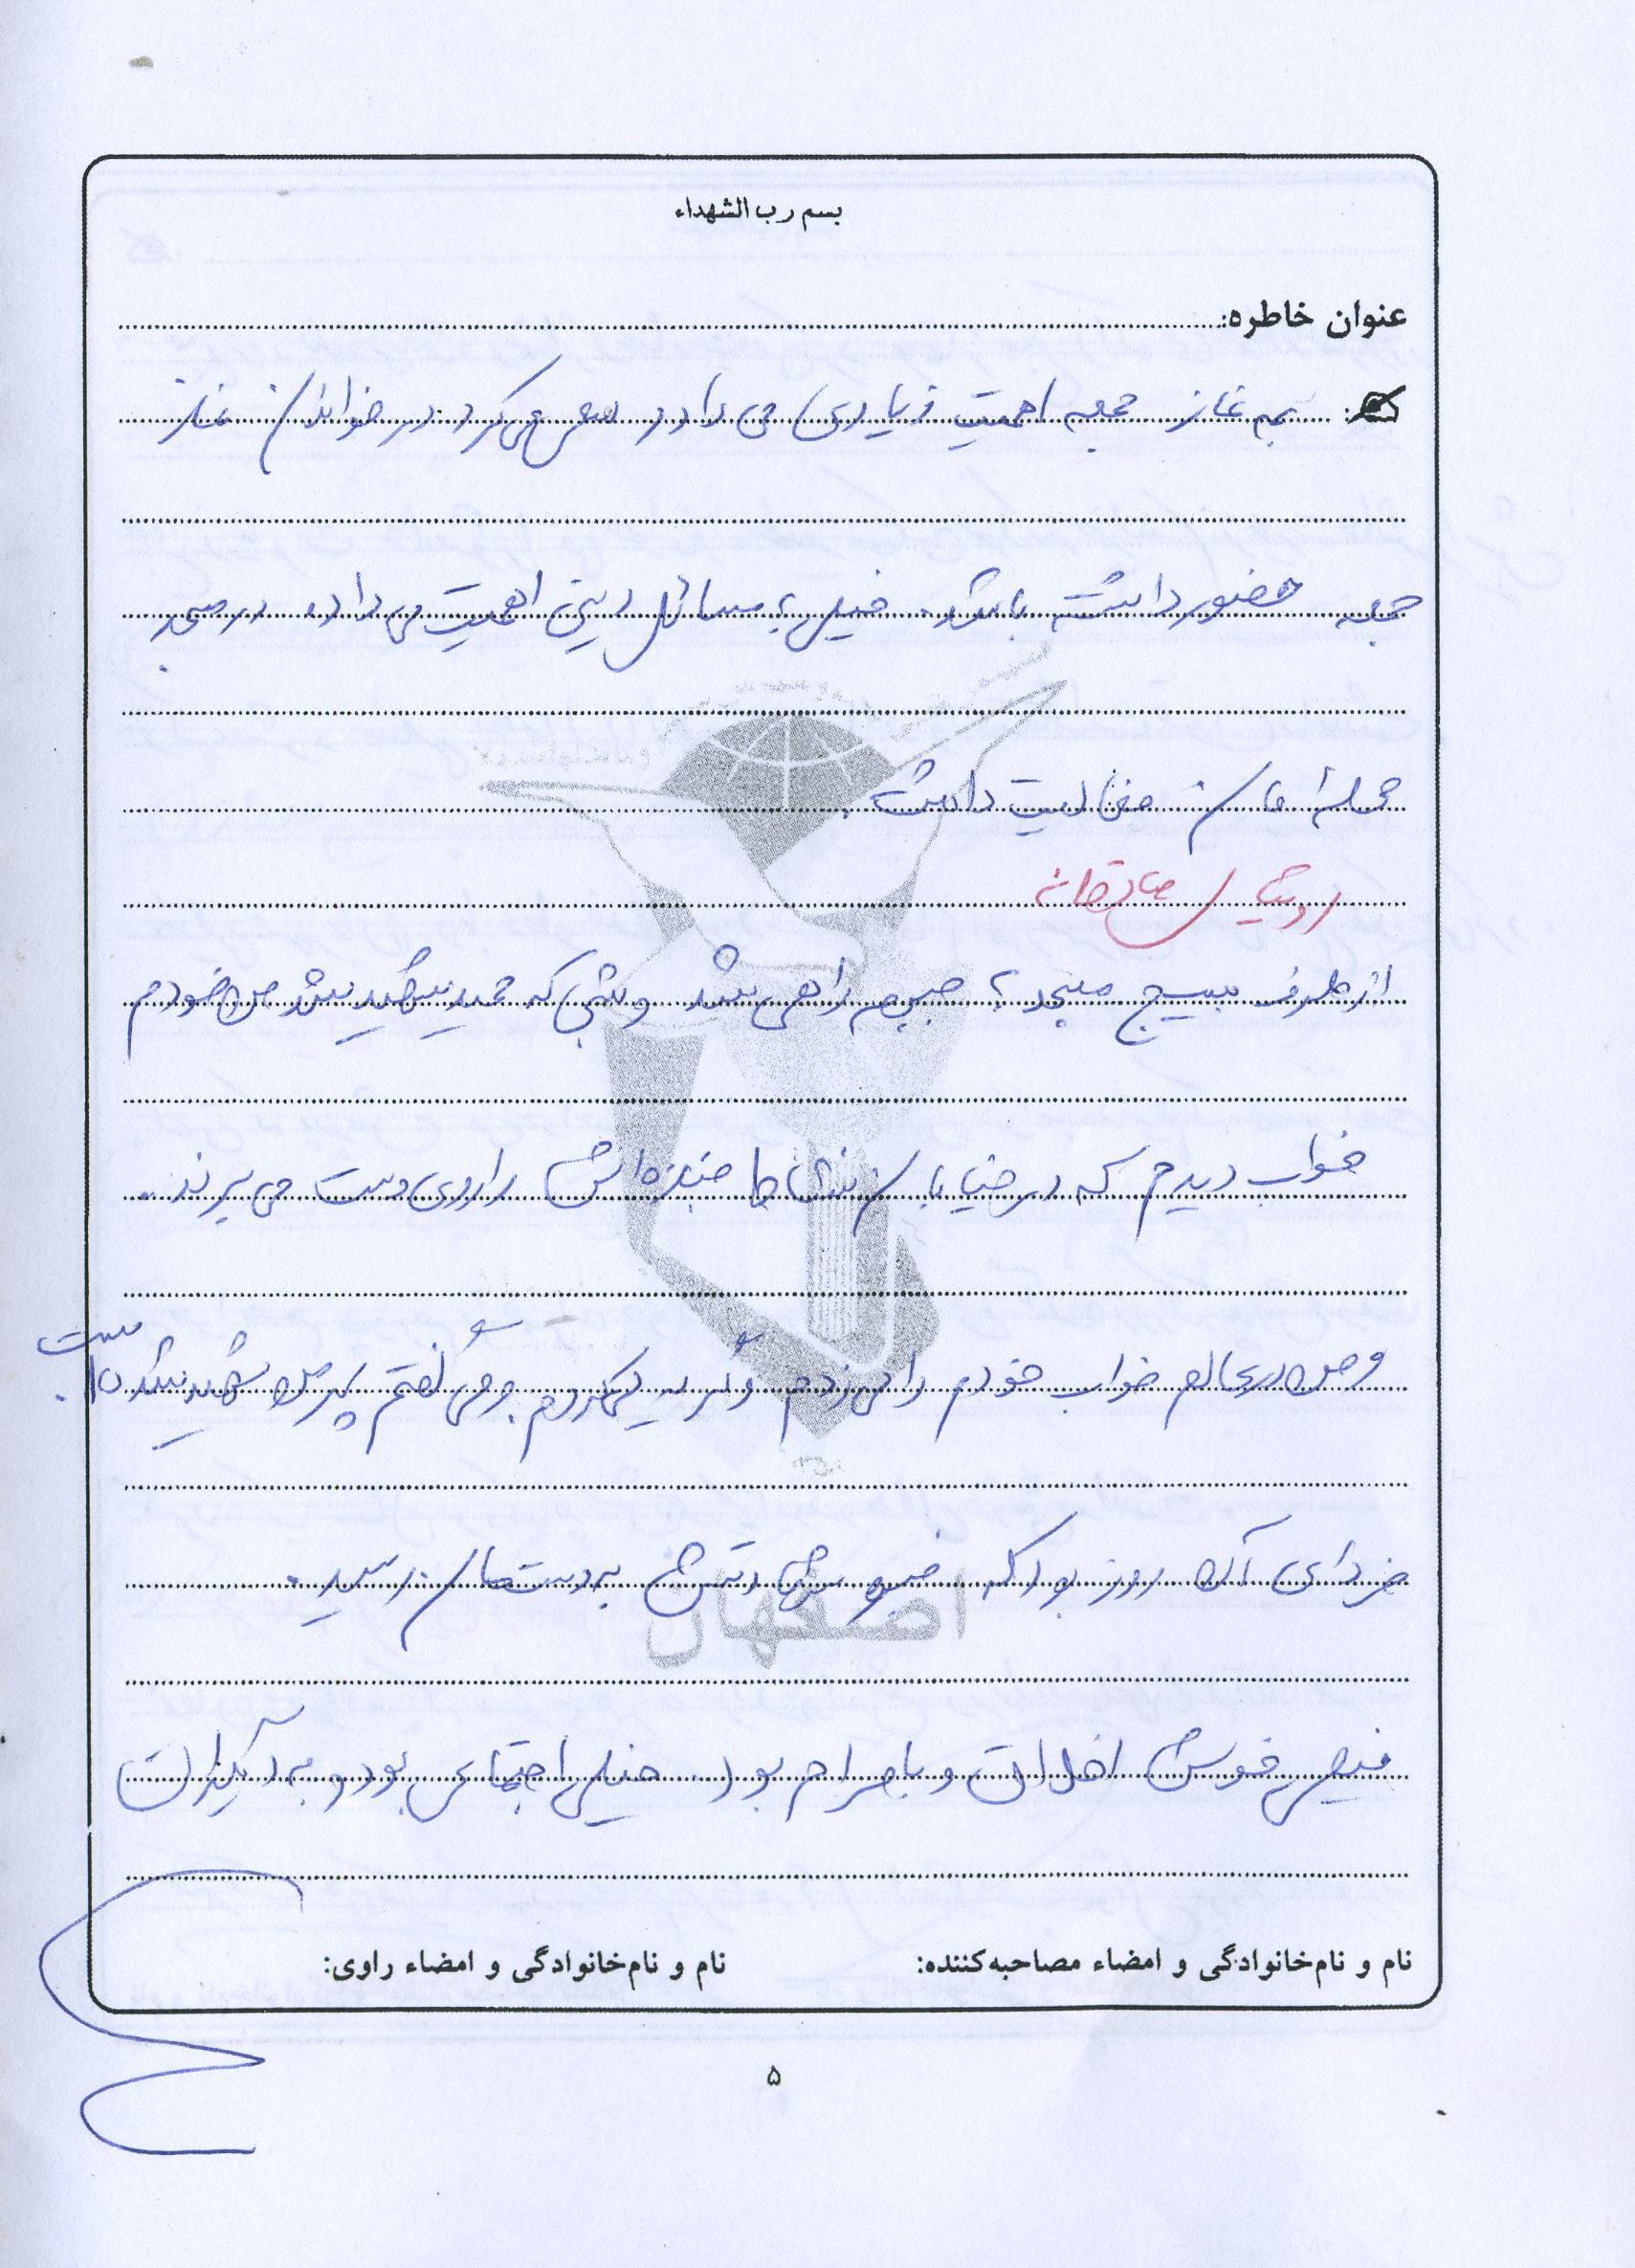 بسم رب الشهداء
عنوان خاطره:
به نماز جمعه اهمیت زیادی می داد و سعی می کرد در خواندن نماز
جمعه حضور داشته باشد. خیلی به مسائل دینی اهمیت می داد. در مسجد
محله امان فعالیت داشت.
رویای صادقانه
از طرف بسیج مسجد به جبهه راهی شد و شبی که حمید شهید شد من خودم
خواب دیدم که در خیابان نشاط جنازه اش را روی دست می برند.
و من در عالم خواب خودم را می زدم و گریه می کردم و می گفتم پسر من شهید شده است.
فردای آن روز بود که خبر شهادتش به دستمان رسید.
خیلی خوش اخلاق و بامرام بود. خیلی اجتماعی بود و به
اصفهان
نام و نام‌خانوادگی و امضاء مصاحبه‌کننده:
نام و نام‌خانوادگی و امضاء راوی:
۵